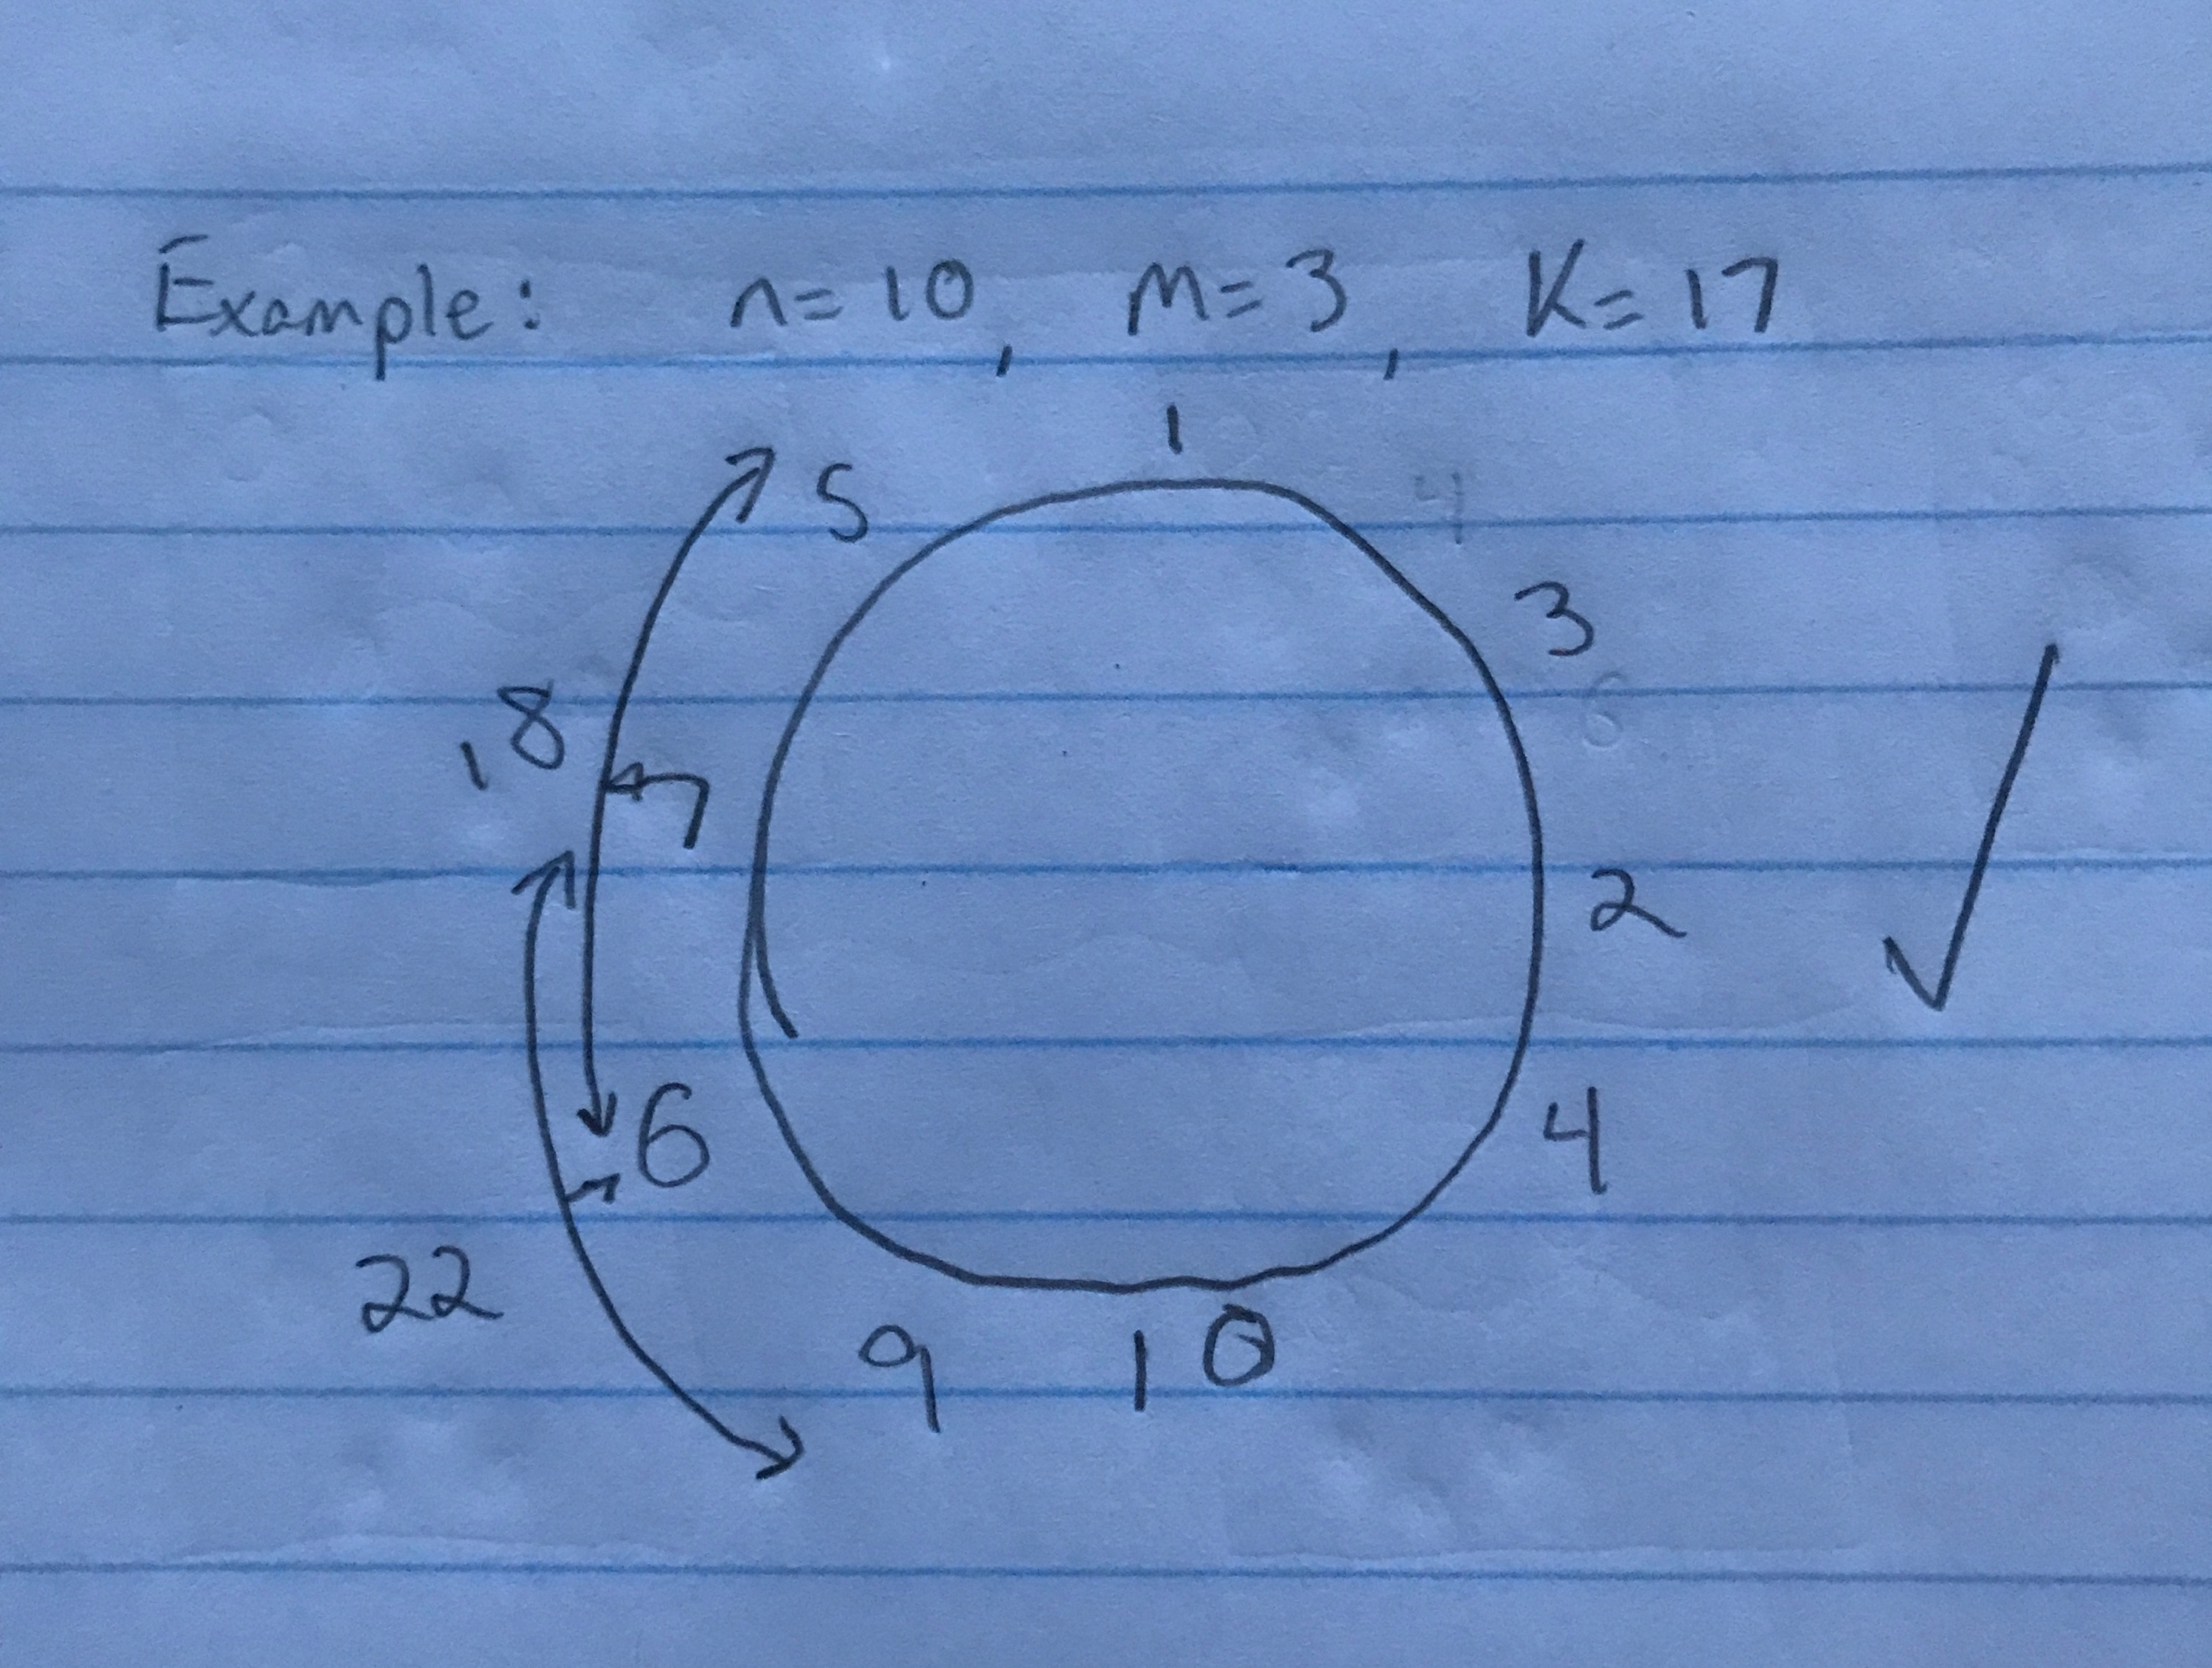 Example: n=10, m=3, K=17
1
5 4
3
18 6
7
2
6 4
22
9 10